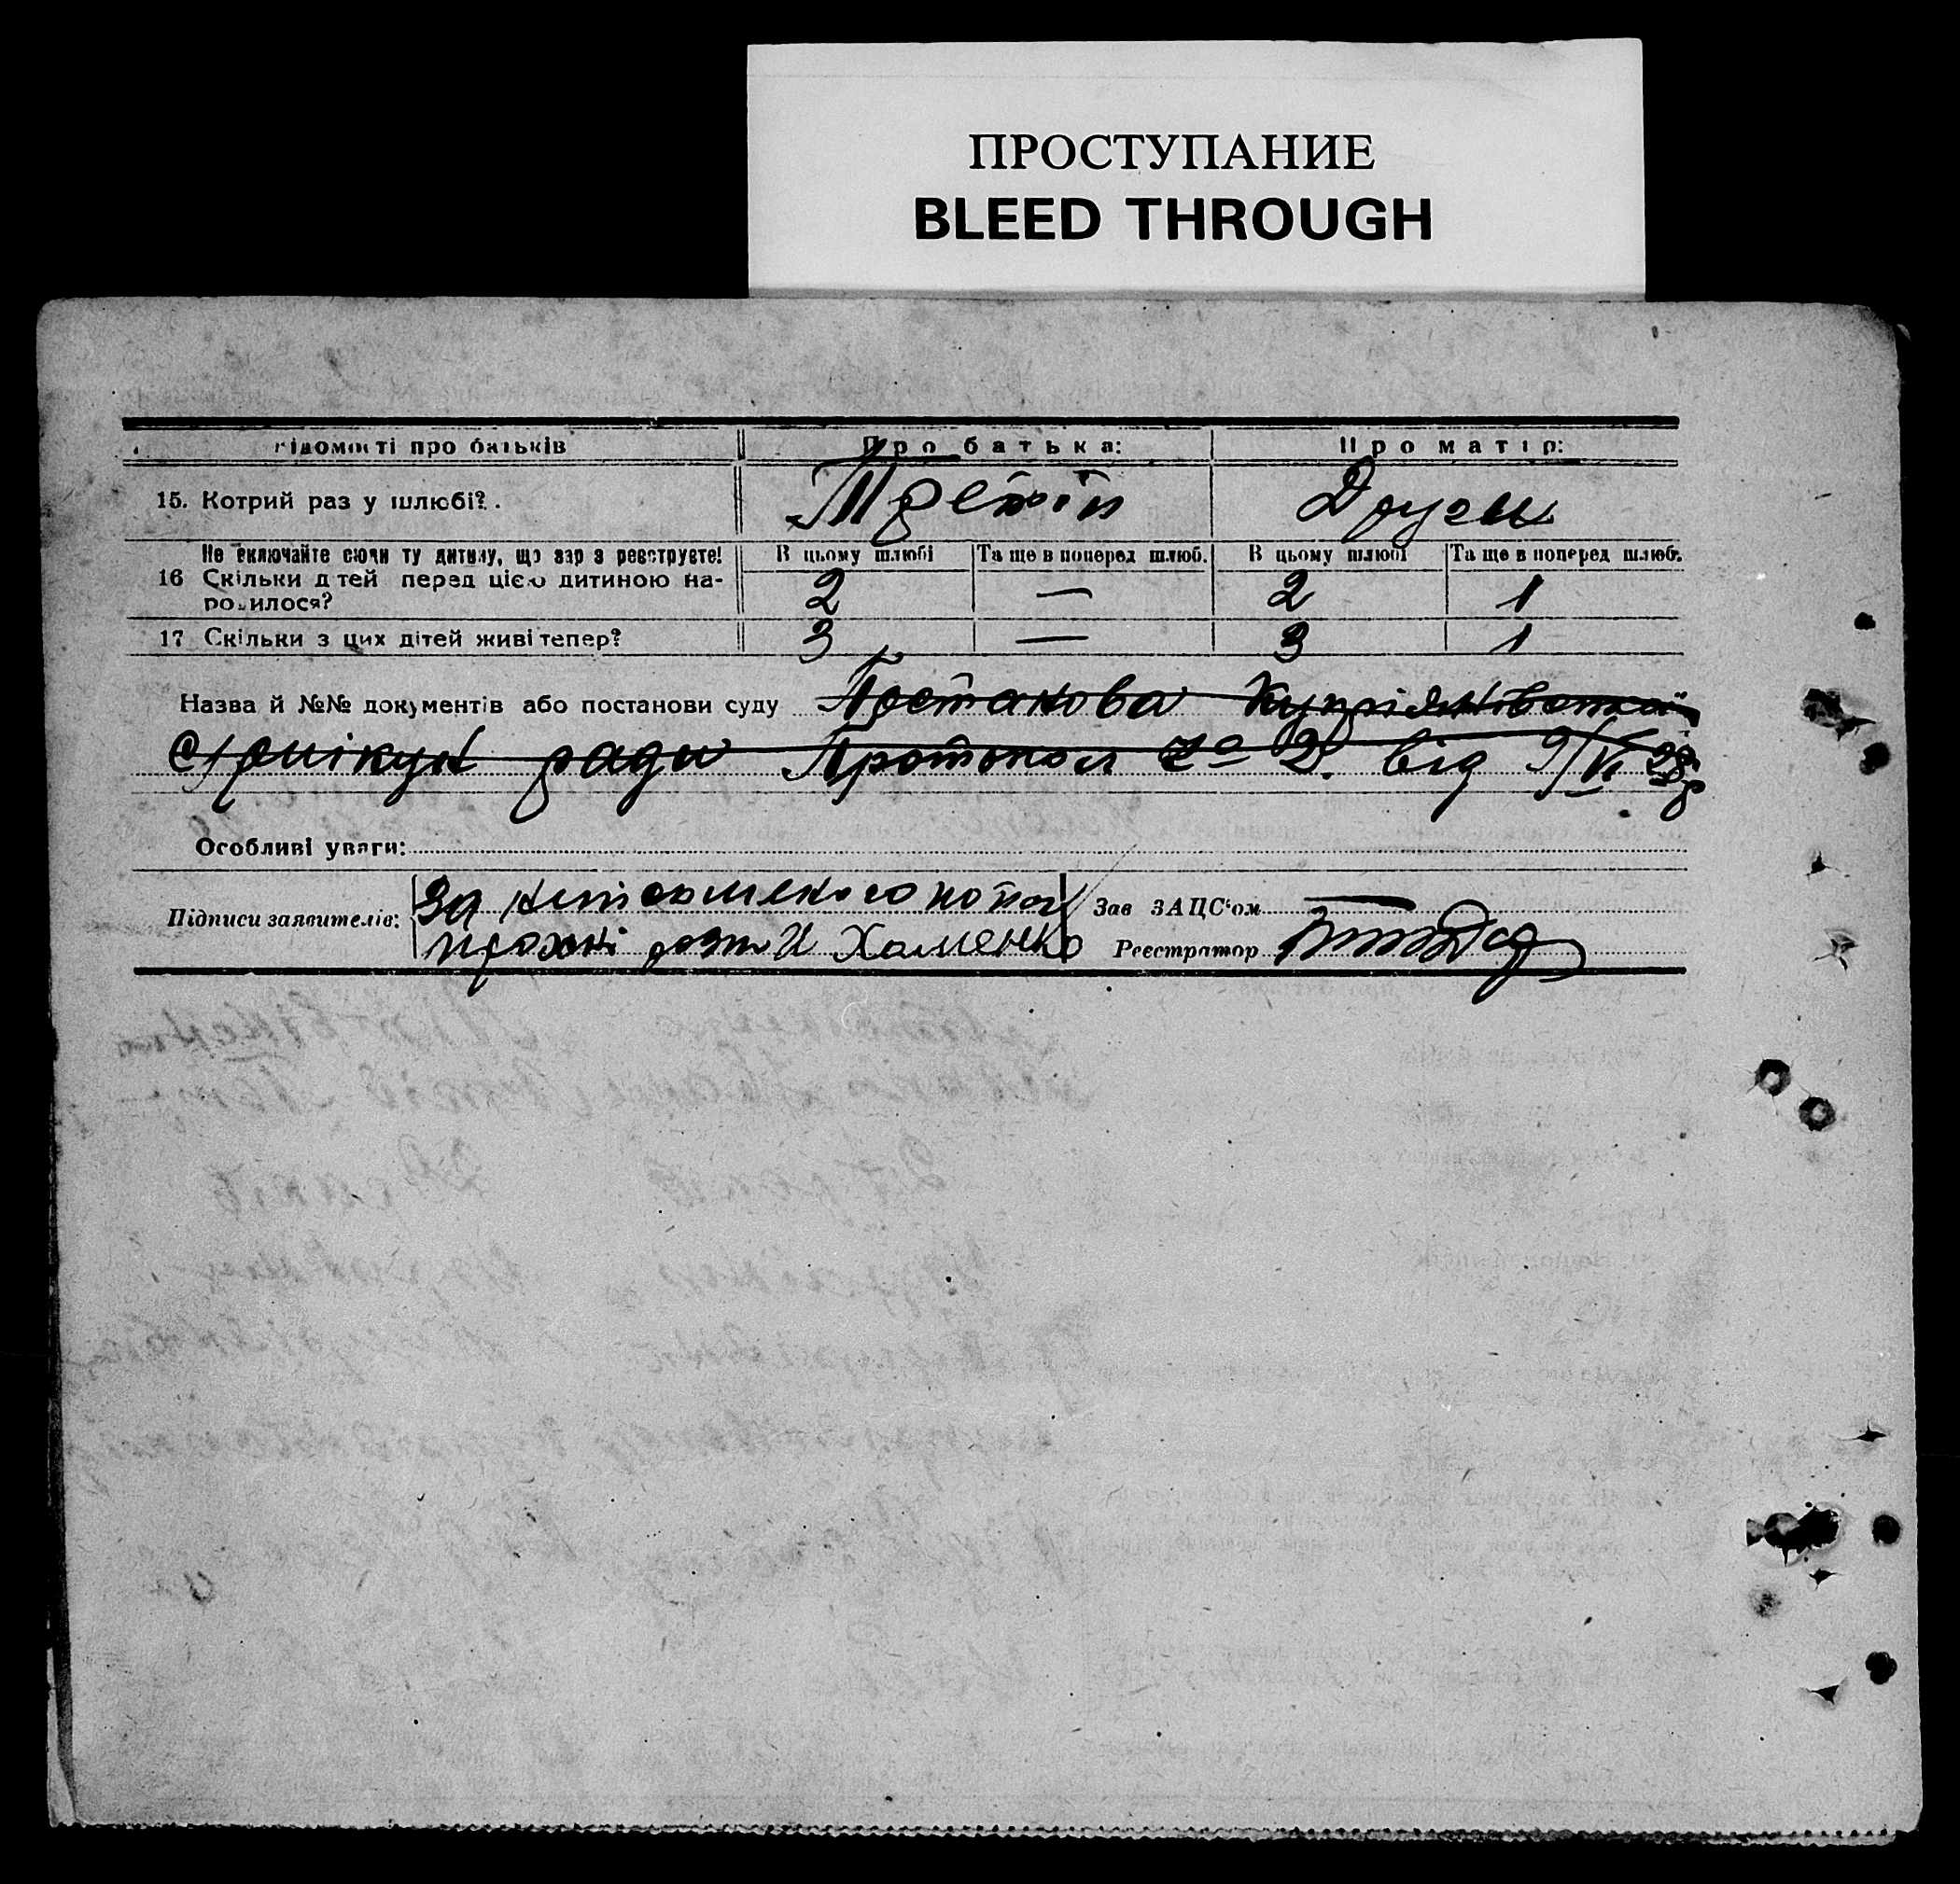 ПРОСТУПАНИЕ
BLEED THROUGH
ідомості про батьків Про батька: Про матір:
15. Котрий раз у шлюбі? Третій Други
Не включайте сюди ту дитину, що зар з реєструєте! В цьому шлюбі Та ще в поперед шлюб. В цьому шлюбі Та ще в поперед шлюб.
16 Скільки д тей перед цією дитиною на- 2 — 2 1
родилося?
17 Скільки з цих дітей живі тепер? 3 — 3 1
Назва й №№ документів або постанови суду Постанова
ради Протокол за 2. від 9/VI 28р
Особливі уваги:
Підписи заявителів: За Зав ЗАЦС'ом —
Хоменко Реєстратор